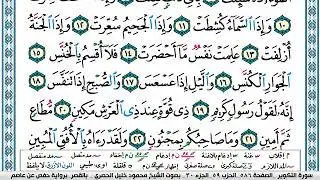 ١٠ وَإِذَا ٱلسَّمَآءُ كُشِطَتْ ١١ وَإِذَا ٱلْجَحِيمُ سُعِّرَتْ ١٢ وَإِذَا ٱلْجَنَّةُ
أُزْلِفَتْ ١٣ عَلِمَتْ نَفْسٌ مَّآ أَحْضَرَتْ ١٤ فَلَآ أُقْسِمُ بِٱلْخُنَّسِ ١٥
ٱلْجَوَارِ ٱلْكُنَّسِ ١٦ وَٱلَّيْلِ إِذَا عَسْعَسَ ١٧ وَٱلصُّبْحِ إِذَا تَنَفَّسَ ١٨
إِنَّهُۥ لَقَوْلُ رَسُولٍ كَرِيمٍ ١٩ ذِى قُوَّةٍ عِندَ ذِى ٱلْعَرْشِ مَكِينٍ ٢٠ مُّطَاعٍ
ثَمَّ أَمِينٍ ٢١ وَمَا صَاحِبُكُم بِمَجْنُونٍ ٢٢ وَلَقَدْ رَءَاهُ بِٱلْأُفُقِ ٱلْمُبِينِ
سورة التكوير الصفحة ٥٨٦ الحزب ٥٩ الجزء ٣٠ - بصوت الشيخ محمود خليل الحصري - بالقصر برواية حفص عن عاصم